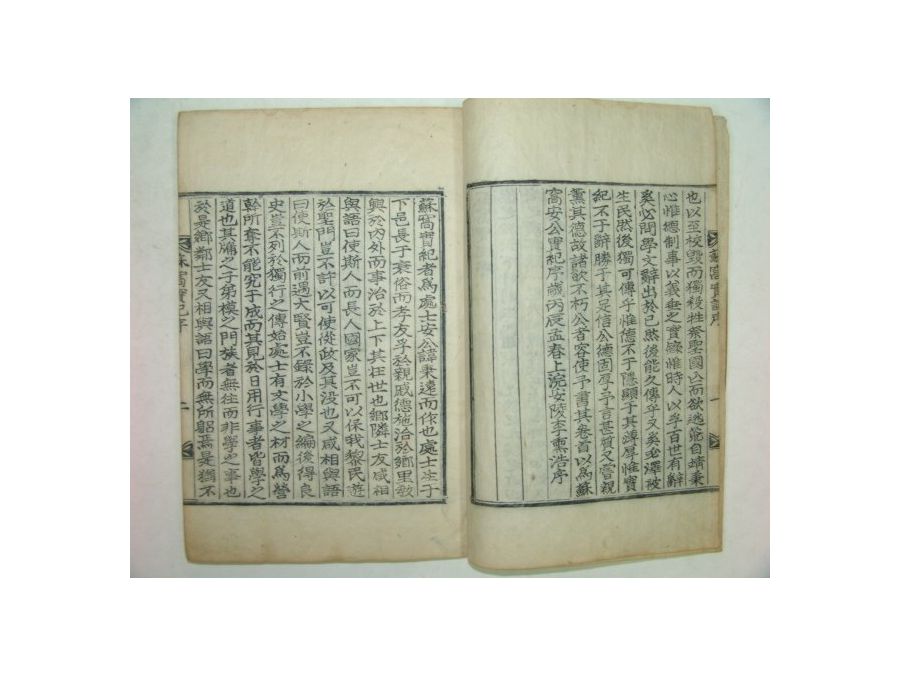 蘇窩實記序
一
也以至校毁而獨殺牲祭聖國亡而欲逃
自靖秉
心惟德制事以義垂之實
惟時人以孚百世有辭
奚必問學文辭出於己然後能久傳乎文奚必
被
生民然後獨可傳乎惟德不于隱顯于其
厚惟實
紀不于辭勝于其足信公德固厚予言甚質又嘗親
薰其德故諸歆不朽公者容使予書其卷首以爲蘇
窩安公實紀序歲丙辰孟春上浣安陵李
浩序
蘇窩實紀者爲處士安公諱秉遠而作也處士生于
下邑長于衰俗而孝友孚於親戚德施洽於鄉里敎
興於內外而事治於上下其在世也鄉隣士友咸相
與語曰使斯人而長人國家豈不可以保我黎民遊
於聖門豈不許以可使從政及其没也又咸相與語
曰使斯人而前遇大賢豈不錄於小學之編後得良
史豈不列於獨行之傳始處士有文學之材而爲營
幹所奪不能究于成而其見於日用行事者皆學之
道也其
之子弟模之門族者無往而非學之事也
於是鄉鄰士友又相與語曰學而無所躬焉是猶不
蘇窩實記序
二